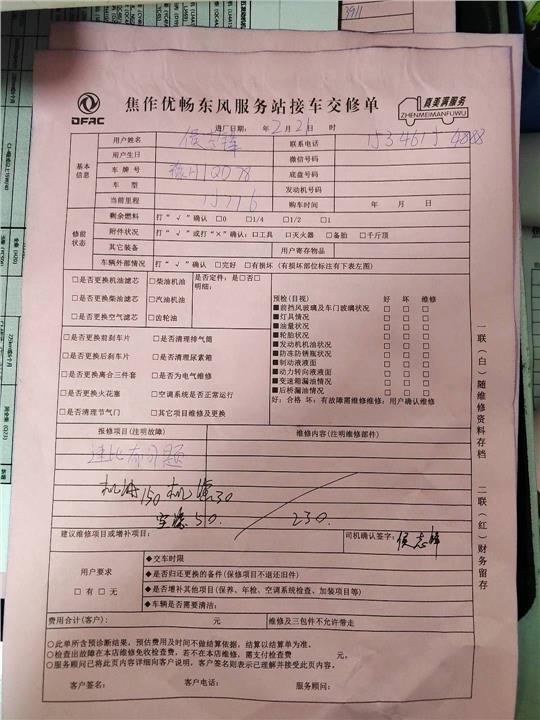 3911
DFAC
焦作优畅东风服务站接车交修单
真美满服务
ZHENMEIMANFUWU
进厂日期: 年 2 月 21 日 时
基本信息
用户姓名 侯志锋 联系电话
用户生日 微信号码
车牌号 底盘号码
车型 发动机号码
当前里程 购车时间 年 月 日
修前状态
剩余燃料 打“√”确认 □0 □1/4 □1/2 □1
附件状况 打“√”或打“×”确认:□工具 □灭火器 □备胎 □千斤顶
其它装备 用户寄存物品
车辆外部情况 打“√”确认 □完好 □有损坏(有损坏部位标注有下表左图)
□是否更换机油滤芯 □柴油机油 是否定件:是□否□
明细:
□是否更换柴油滤芯 □汽油机油
□是否更换空气滤芯 □齿轮油
□是否更换前刹车片 □是否清理排气筒
□是否更换后刹车片 □是否清理尿素箱
□是否更换离合三件套 □是否为电气维修
□是否更换火花塞 □空调系统是否正常运行
□是否清理节气门 □其它项目维修及更换
预检(目视) 好 坏 维修
■前挡风玻璃及车门玻璃状况 □ □ □
■灯具情况 □ □ □
■油量状况 □ □ □
■轮胎状况 □ □ □
■发动机机油状况 □ □ □
■防冻防锈瓶状况 □ □ □
■制动液液面 □ □ □
■动力转向液液面 □ □ □
■变速箱漏油情况 □ □ □
■后桥漏油情况 □ □ □
好:合格 坏:有故障需维修维修:用户确认维修
报修项目(注明故障) 维修内容(注明维修部件)
机油150 机滤30
空滤50. 230.
建议维修项目或增补项目: 司机确认签字: 侯志锋
用户要求
□有 □无
◆交车时限
◆是否归还更换的备件(保修项目不退还旧件)
◆是否增补其他项目(保养、年检、空调系统检查、加装项目等)
◆车辆是否需要清洁:
费用合计(客户): 元 维修及三包件不允许带走
○此单所含预诊断结果,预估费用及时间不做结算依据,结算以结算单为准。
○检查出故障在本店维修免收检查费,若不在本店维修,需支付检查费 元。
○服务顾问已将此页内容详细向客户说明,客户签名则表示已理解并接受此页内容。
客户签名: 客户电话: 服务顾问:
一联(白)随维修资料存档
二联(红)财务留存